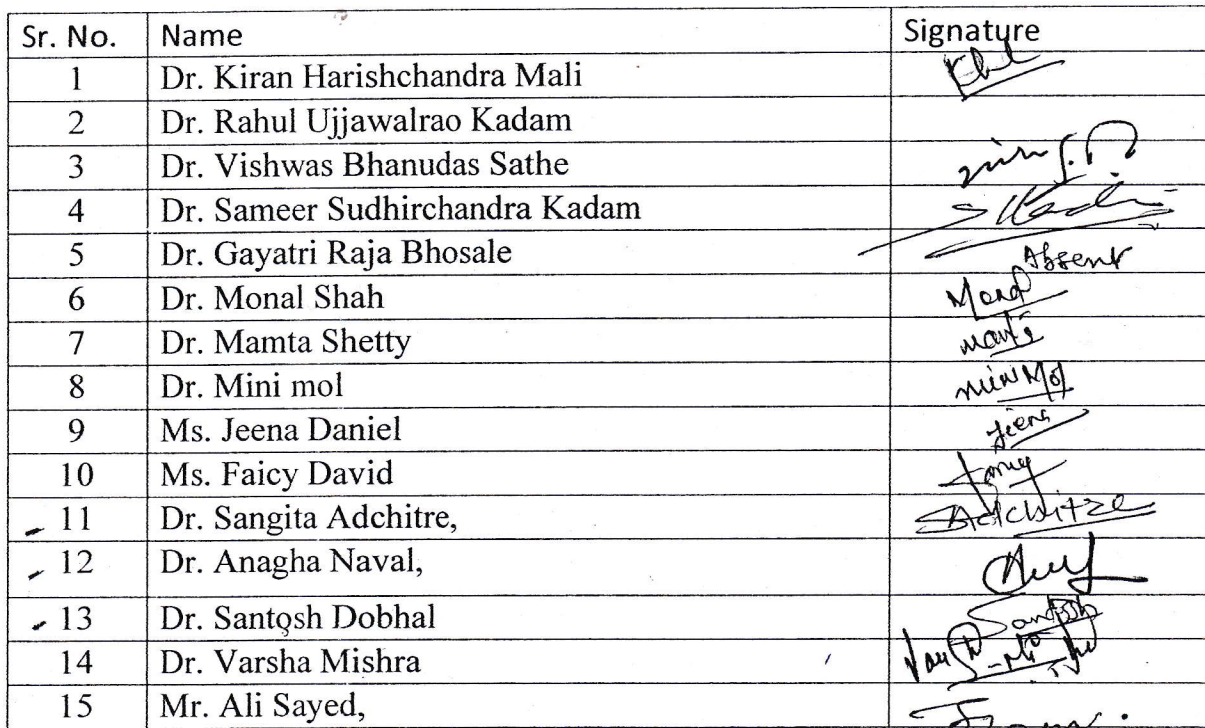 Sr. No. Name Signature
1 Dr. Kiran Harishchandra Mali
2 Dr. Rahul Ujjawalrao Kadam
3 Dr. Vishwas Bhanudas Sathe
4 Dr. Sameer Sudhirchandra Kadam
5 Dr. Gayatri Raja Bhosale Absent
6 Dr. Monal Shah
7 Dr. Mamta Shetty
8 Dr. Mini mol
9 Ms. Jeena Daniel Jeena
10 Ms. Faicy David
11 Dr. Sangita Adchitre, SAdchitre
12 Dr. Anagha Naval,
13 Dr. Santosh Dobhal Santosh
14 Dr. Varsha Mishra
15 Mr. Ali Sayed,